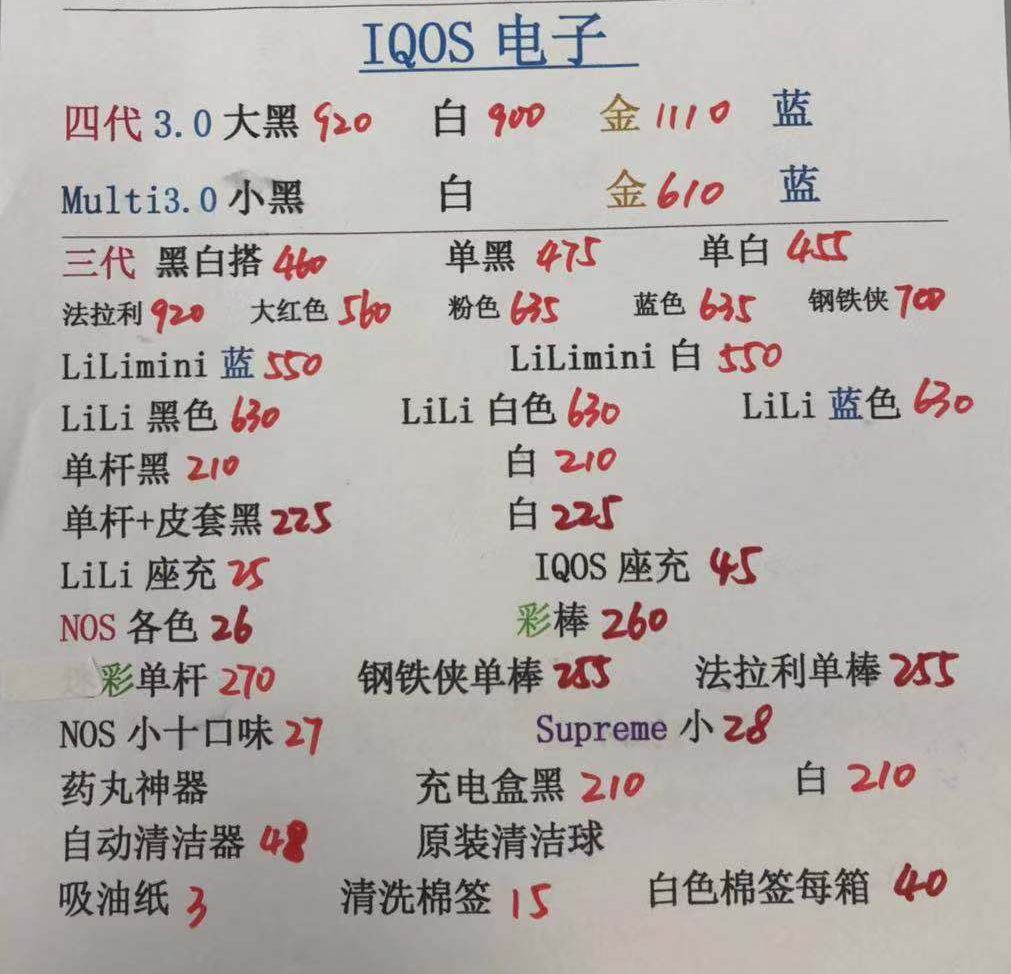 IQOS 电子
四代 3.0 大黑 920 白 900 金 1110 蓝
Multi3.0 小黑 白 金 610 蓝
三代 黑白搭 460 单黑 475 单白 455
法拉利 920 大红色 560 粉色 635 蓝色 635 钢铁侠 700
LiLimini 蓝 550 LiLimini 白 550
LiLi 黑色 630 LiLi 白色 630 LiLi 蓝色 630
单杆黑 210 白 210
单杆+皮套黑 225 白 225
LiLi 座充 25 IQOS 座充 45
NOS 各色 26 彩棒 260
彩单杆 270 钢铁侠单棒 255 法拉利单棒 255
NOS 小十口味 27 Supreme 小 28
药丸神器 充电盒黑 210 白 210
自动清洁器 48 原装清洁球
吸油纸 3 清洗棉签 15 白色棉签每箱 40